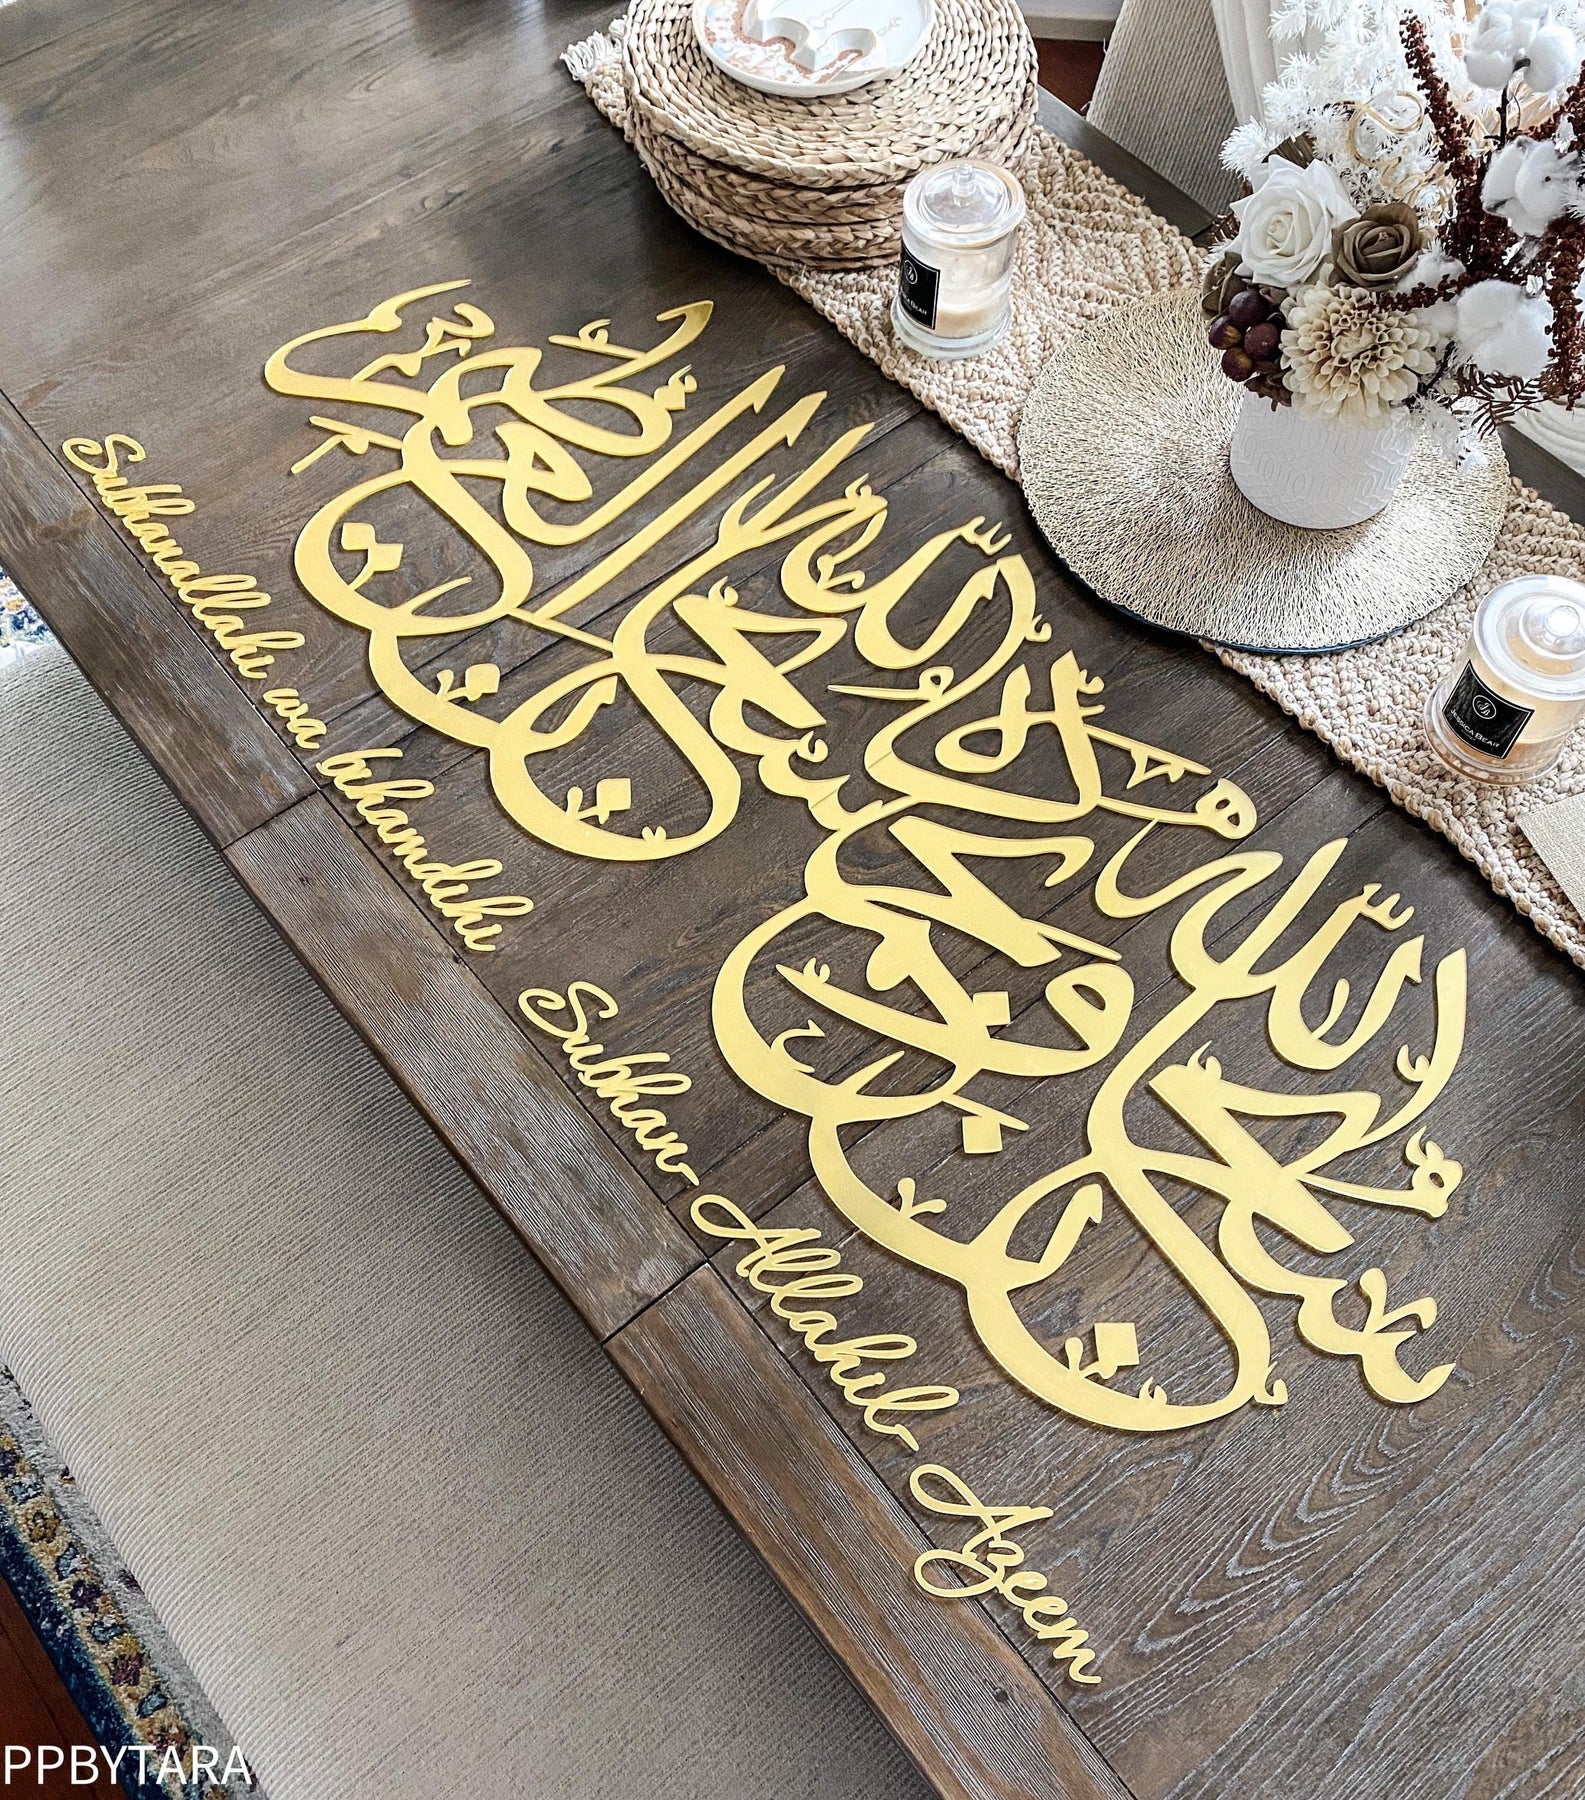 سبحان الله وبحمده
سبحان الله العظيم
Subhanallahi wa bihamdihi
Subhan-Allahil-Azeem
JESSICA BEAR
JESSICA BEAR
PPBYTARA